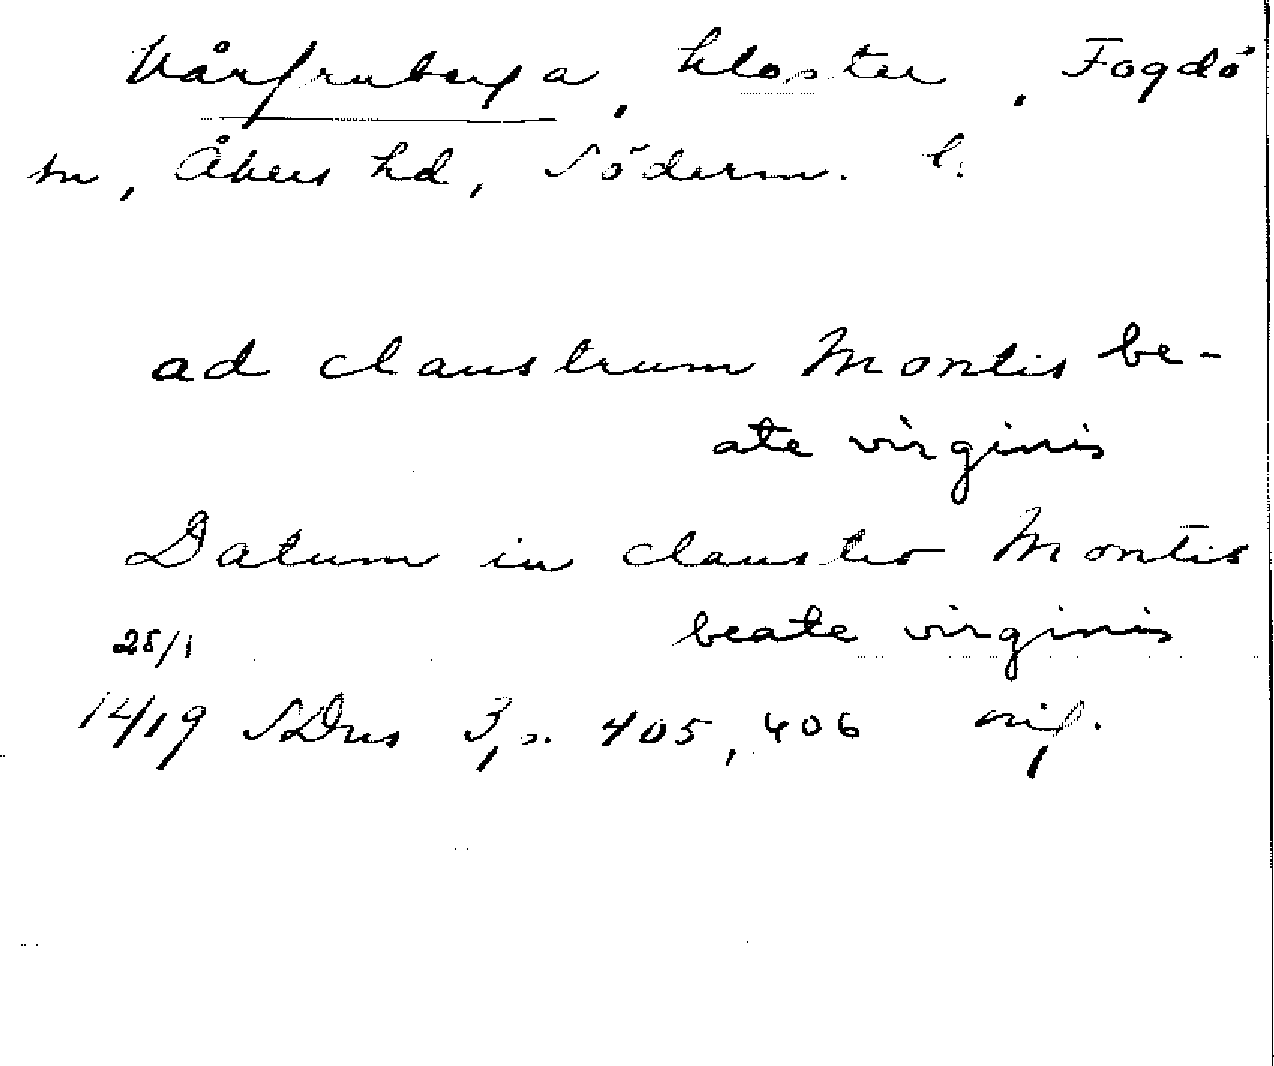 Vårfruberga, kloster, Fogdö
sn, Åkers hd, Söderm. l.
ad claustrum Montis be-
ate virginis
Datum in claustro Montis
beate virginis
28/1
1419 SDns 3, s. 405, 406 orig.